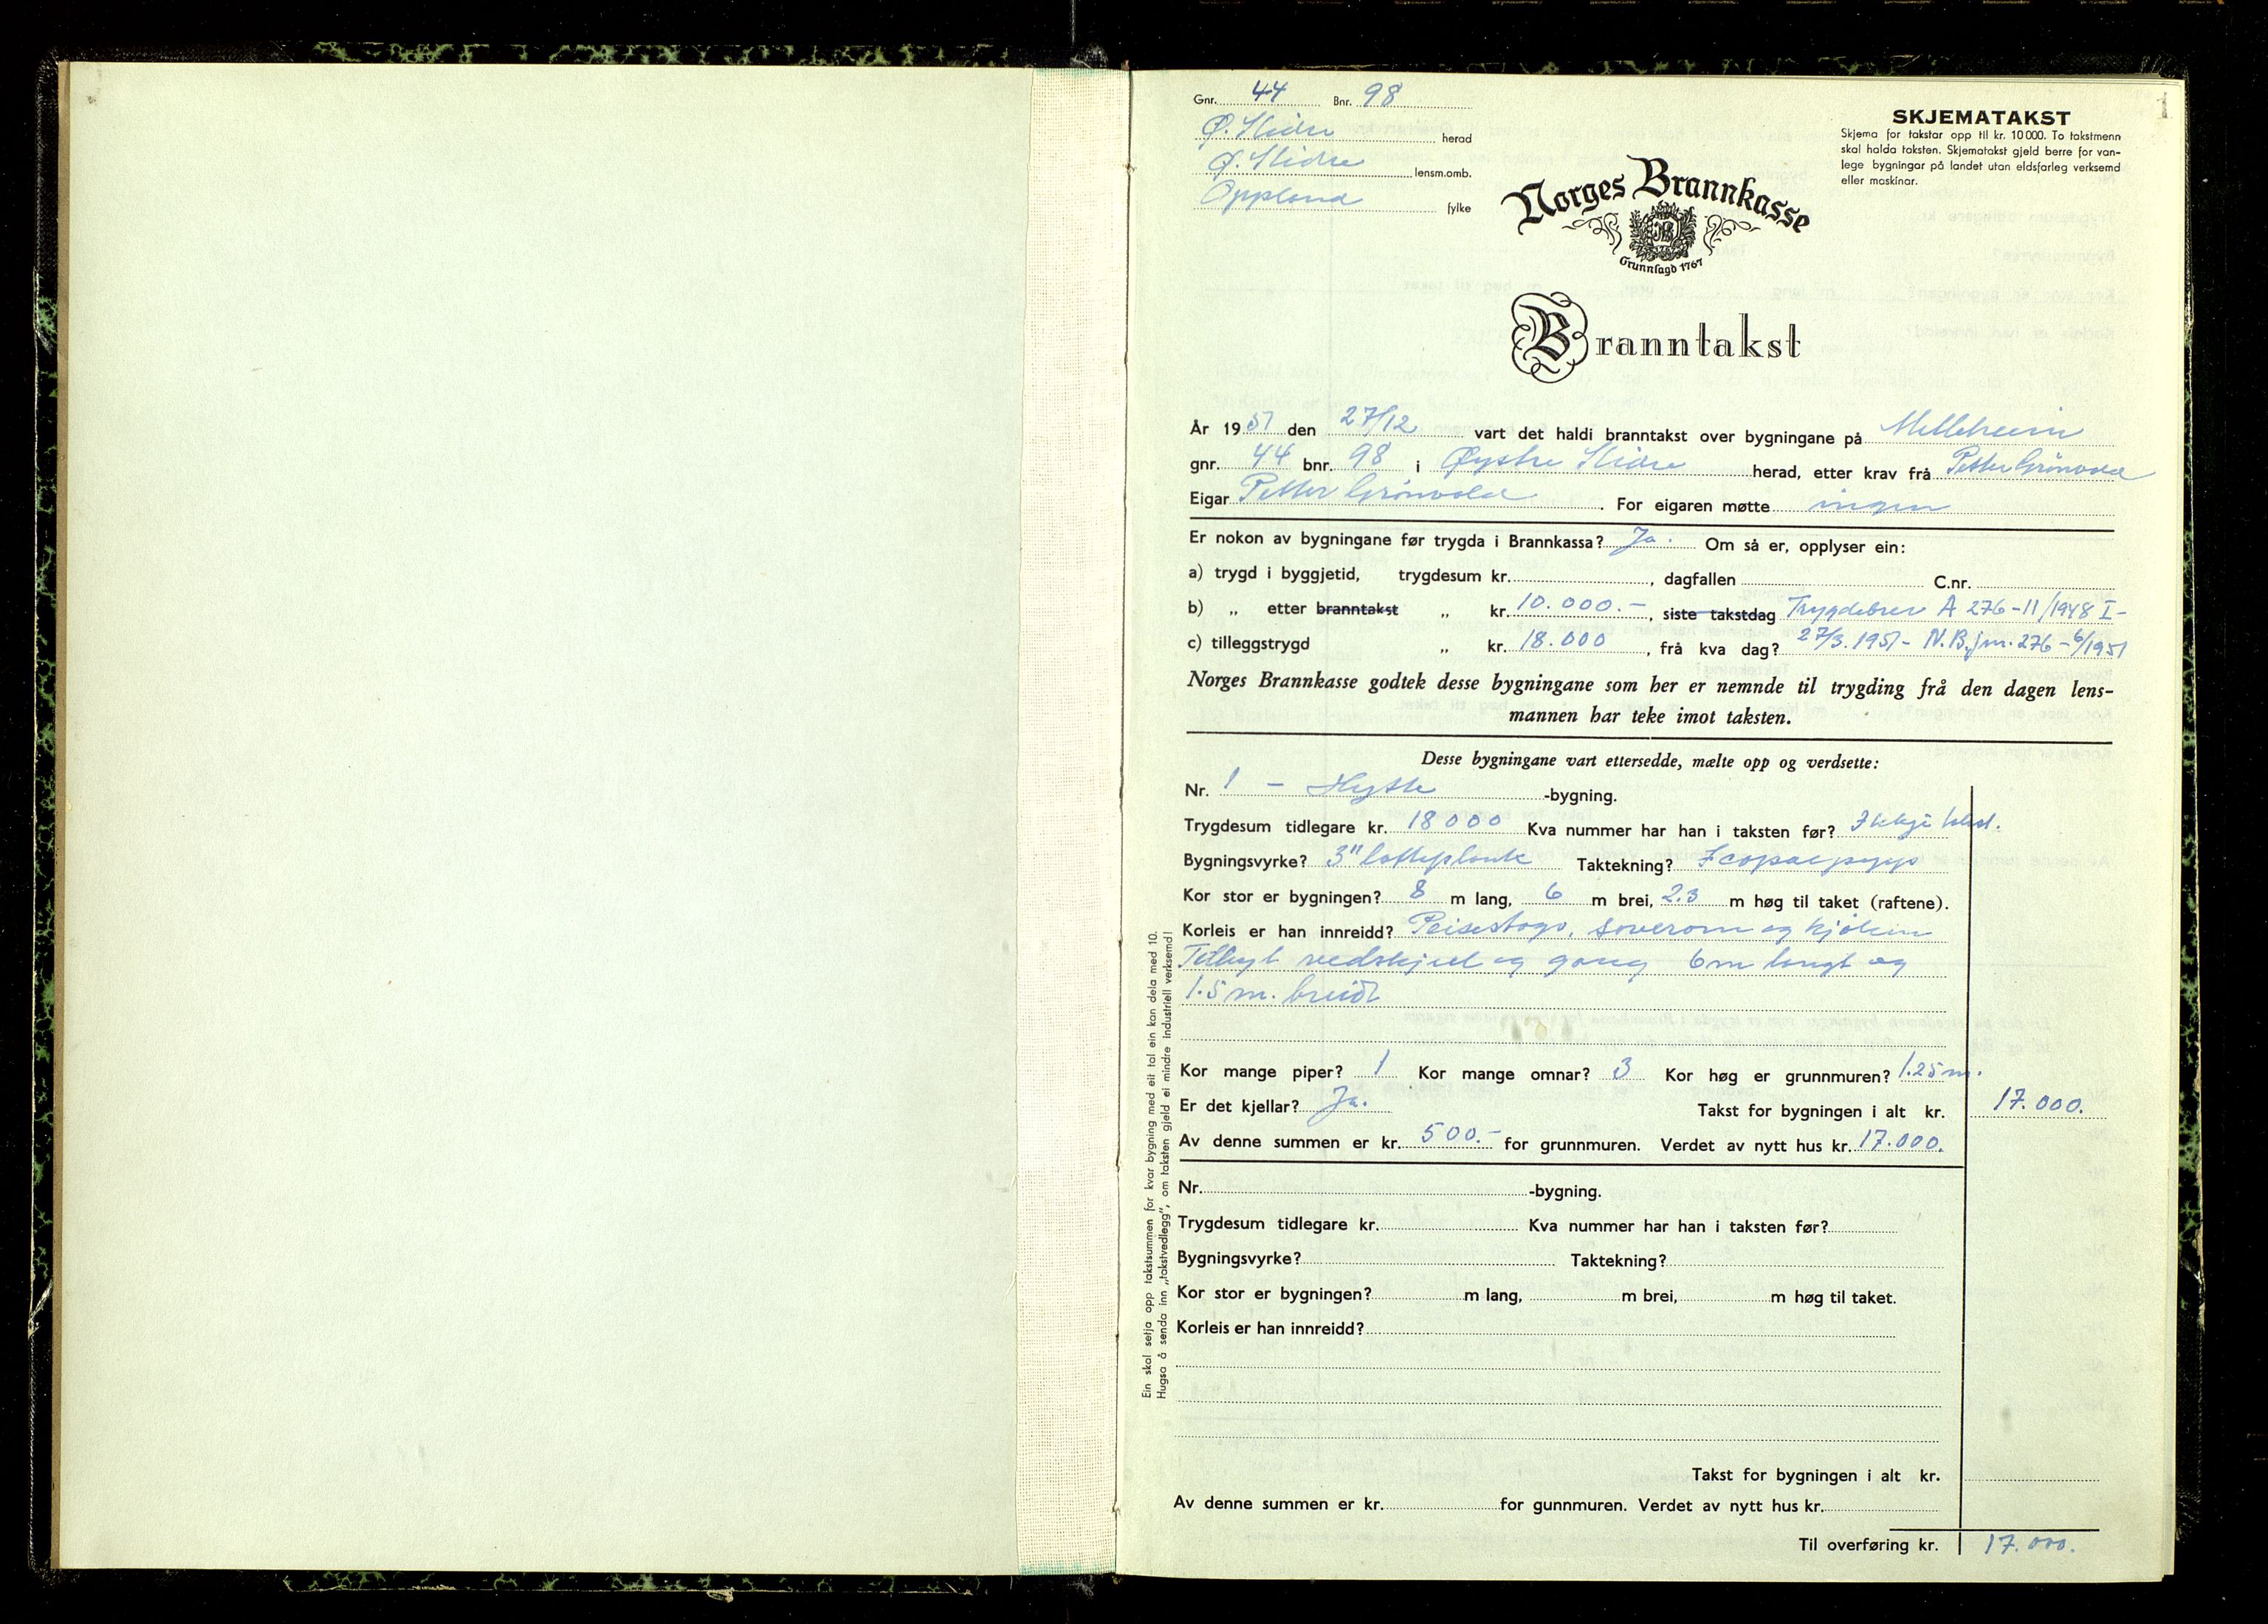 1
Gnr. 44 Bnr. 98
Ø. Slidre herad
Ø. Slidre lensm.omb.
Oppland fylke
SKJEMATAKST
Skjema for takstar opp til kr. 10 000. To takstmenn
skal halda taksten. Skjematakst gjeld berre for van-
lege bygningar på landet utan eldsfarleg verksemd
eller maskinar.
Norges Brannkasse
Grunnlagd 1767
Branntakst
År 1951 den 27/12 vart det haldi branntakst over bygningane på Melleheim
gnr. 44 bnr. 98 i Øystre Slidre herad, etter krav frå Petter Grönvold
Eigar Petter Grönvold. For eigaren møtte ingen
Er nokon av bygningane før trygda i Brannkassa? Ja. Om så er, opplyser ein:
a) trygd i byggjetid, trygdesum kr. , dagfallen C.nr.
b) „ etter branntakst „ kr. 10.000.-, siste takstdag Trygdebrev A 276-11/1948 I-
c) tilleggstrygd „ kr. 18.000, frå kva dag? 27/3.1951- N.B. jnr. 276-6/1951
Norges Brannkasse godtek desse bygningane som her er nemnde til trygding frå den dagen lens-
mannen har teke imot taksten.
Desse bygningane vart ettersedde, mælte opp og verdsette:
Nr. 1 - Hytte -bygning.
Trygdesum tidlegare kr. 18000 Kva nummer har han i taksten før? Ikkje
Bygningsvyrke? 3" lafteplank Taktekning? Icopalpapp
Kor stor er bygningen? 8 m lang, 6 m brei, 2.3 m høg til taket (raftene).
Korleis er han innreidd? Peisestogo, soverom og kjöken
Tilbygt vedskjul og gang 6m langt og
1.5 m. breidt
Kor mange piper? 1 Kor mange omnar? 3 Kor høg er grunnmuren? 1.25 m.
Er det kjellar? Ja. Takst for bygningen i alt kr. 17.000.
Av denne summen er kr. 500.- for grunnmuren. Verdet av nytt hus kr. 17.000.
Nr. -bygning.
Trygdesum tidlegare kr. Kva nummer har han i taksten før?
Bygningsvyrke? Taktekning?
Kor stor er bygningen? m lang, m brei, m høg til taket.
Korleis er han innreidd?
Takst for bygningen i alt kr.
Av denne summen er kr. for gunnmuren. Verdet av nytt hus kr.
Til overføring kr. 17.000.
Ein skal setja opp takstsummen for kvar bygning med eit tal ein kan dela med 10.
Hugsa å senda inn „takstvedlegg", om taksten gjeld ei mindre industriell verksemd!